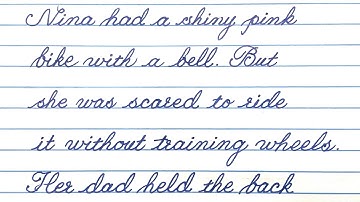 Nina had a shiny pink
bike with a bell. But
she was scared to ride
it without training wheels.
Her dad held the back